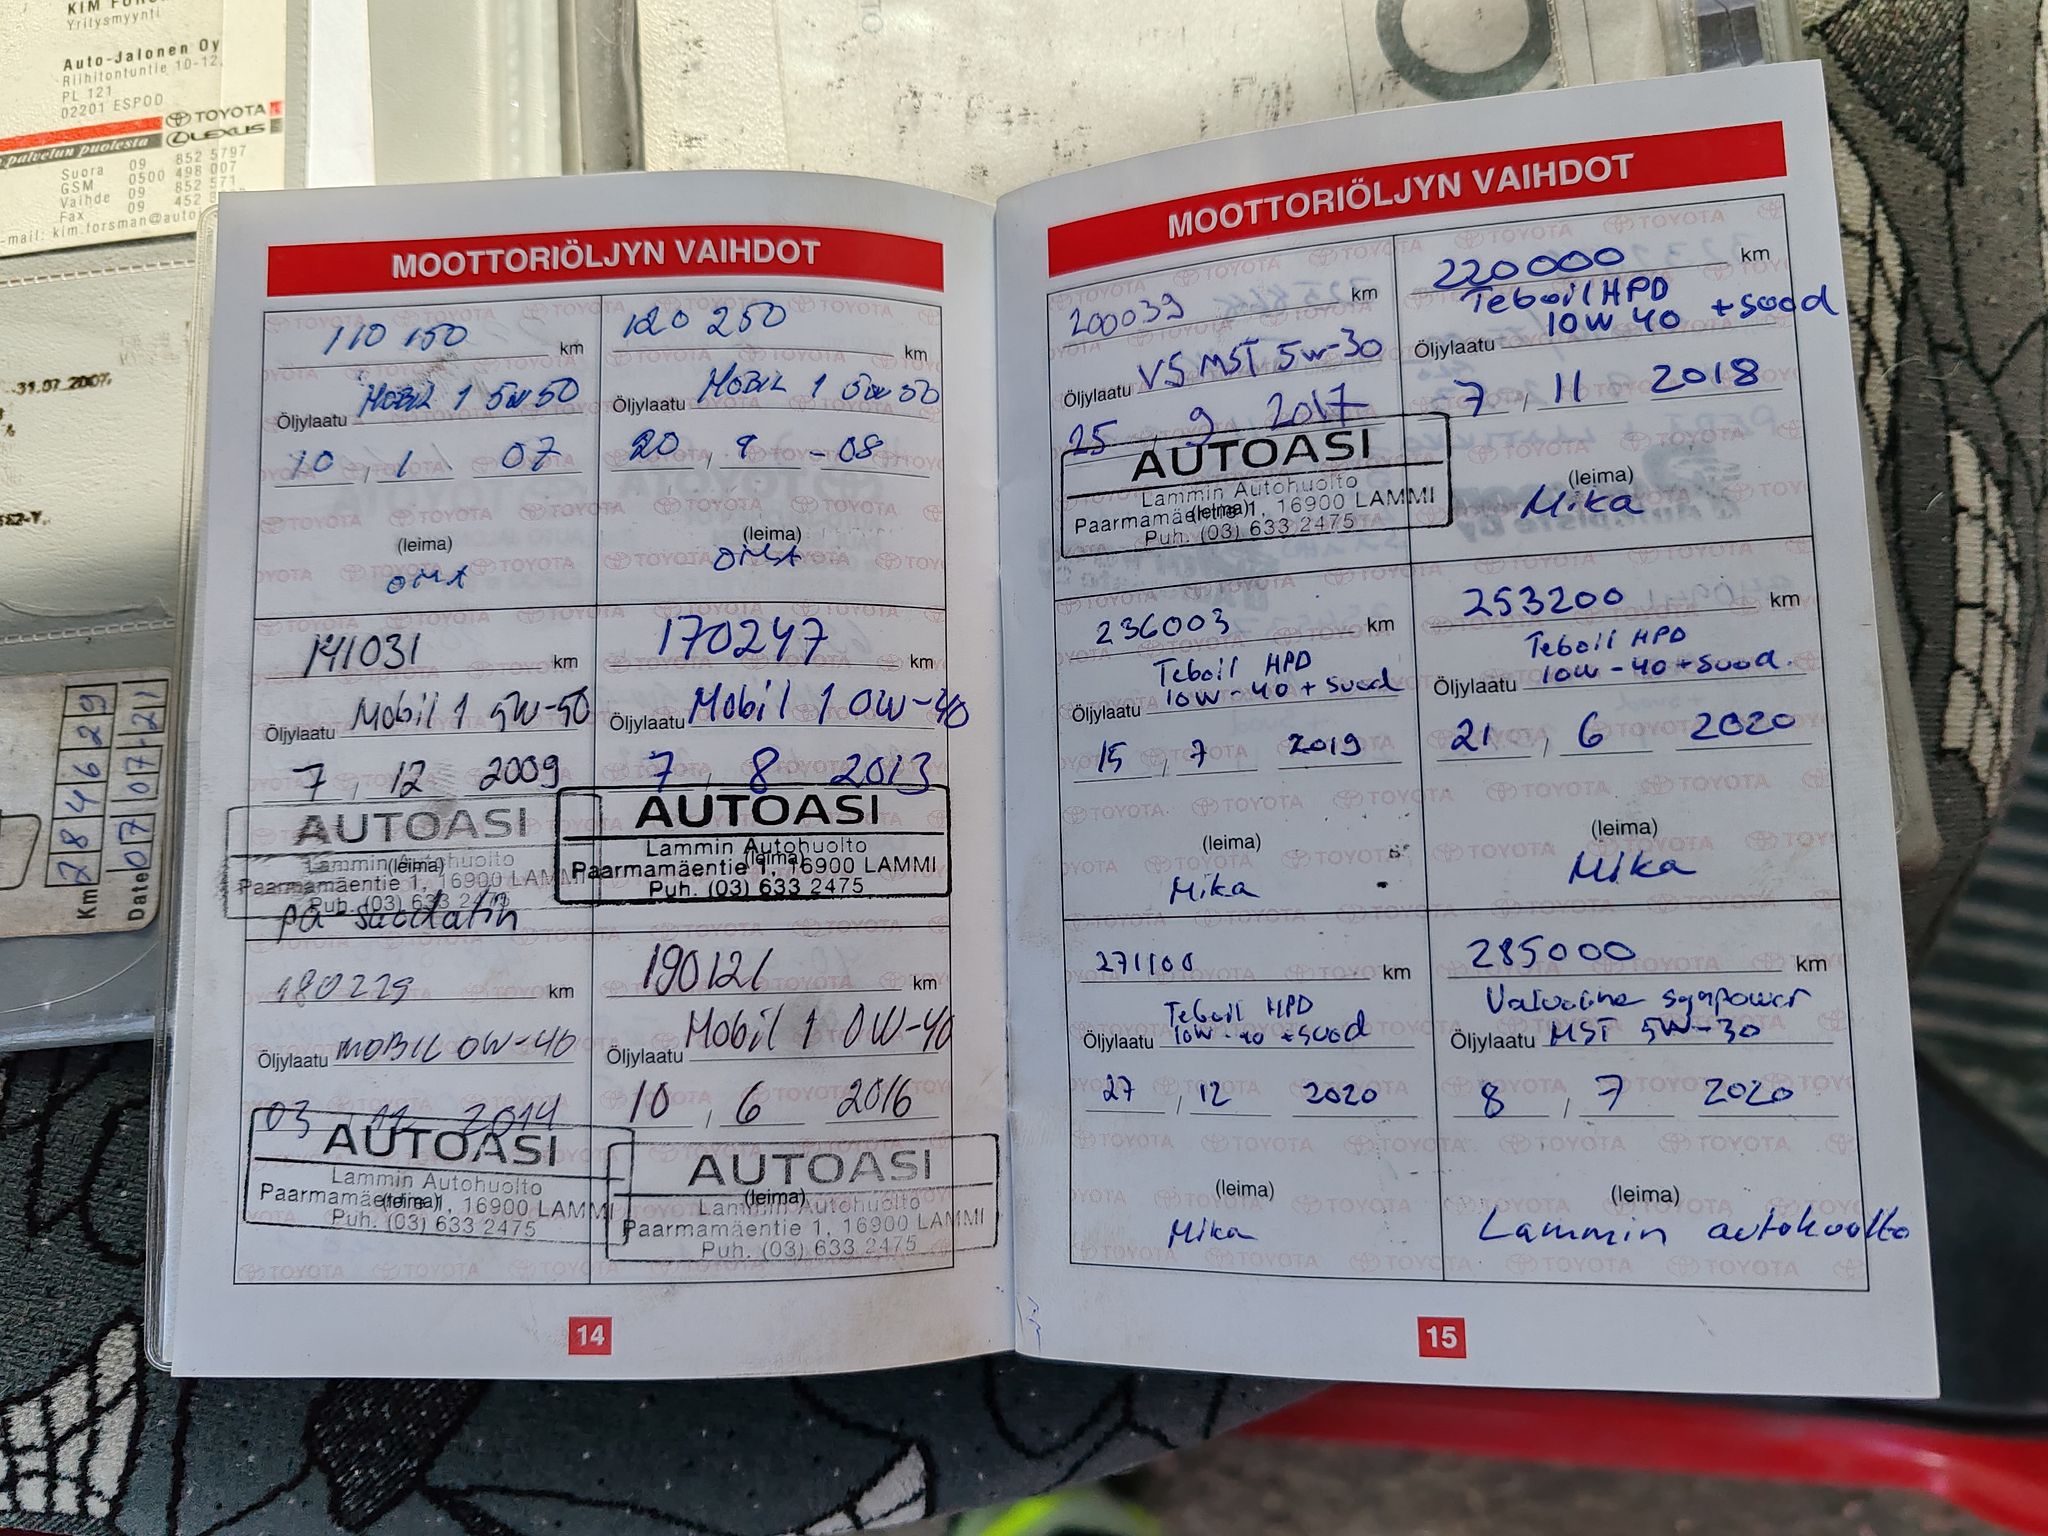 Yritysmyynti
Auto-Jalonen Oy
Riihitontuntie 10-12,
PL 121
02201 ESPOO
TOYOTA
LEXUS
palvelun puolesta
Suora 09 852 5797
GSM 0500 498 007
Vaihde 09 852 571
Fax 09 452 8
-mail: kim.forsman@autoj
31.07.2007,
Km 284629
Date 07 07-21
MOOTTORIÖLJYN VAIHDOT
110 150 km
Öljylaatu Mobil 1 5W50
10, 1 07
(leima)
OMA
120 250 km
Öljylaatu MOBIL 1 5W50
20, 9 -08
(leima)
OMA
141031 km
Öljylaatu Mobil 1 5W-50
7, 12 2009
AUTOASI
Lammin Autohuolto
(leima)
Paarmamäentie 1, 16900 LAMMI
Puh. (03) 633 2475
pa-suodatin
170247 km
Öljylaatu Mobil 1 0W-40
7, 8 2013
AUTOASI
Lammin Autohuolto
(leima)
Paarmamäentie 1, 16900 LAMMI
Puh. (03) 633 2475
180229 km
Öljylaatu MOBIL 0W-40
03 2014
AUTOASI
Lammin Autohuolto
(leima)
Paarmamäentie 1, 16900 LAMMI
Puh. (03) 633 2475
190121 km
Öljylaatu Mobil 1 0W-40
10, 6 2016
AUTOASI
Lammin Autohuolto
(leima)
Paarmamäentie 1, 16900 LAMMI
Puh. (03) 633 2475
14
MOOTTORIÖLJYN VAIHDOT
200039 km
Öljylaatu VS MST 5W-30
25, 9 2017
AUTOASI
Lammin Autohuolto
(leima)
Paarmamäentie 1, 16900 LAMMI
Puh. (03) 633 2475
220000 km
Teboil HPD
10W 40 + suod
Öljylaatu
7, 11 2018
(leima)
Mika
236003 km
Teboil HPD
Öljylaatu 10W-40 + suod
15, 7 2019
(leima)
Mika
253200 km
Teboil HPD
Öljylaatu 10W-40 + suod.
21, 6 2020
(leima)
Mika
271100 km
Teboil HPD
Öljylaatu 10W-40 + suod
27, 12 2020
(leima)
Mika
285000 km
Valvoline synpower
Öljylaatu MST 5W-30
8, 7 2020
(leima)
Lammin autohuolto
15